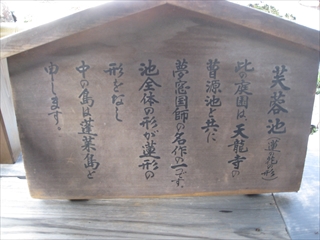 芙蓉池(蓮花形)
此の庭園は、天龍寺の
曹源池と共に
夢窓国師の名作の一つです。
池全体の形が蓮形の
形をなし
中の島は蓬莱島と
申します。